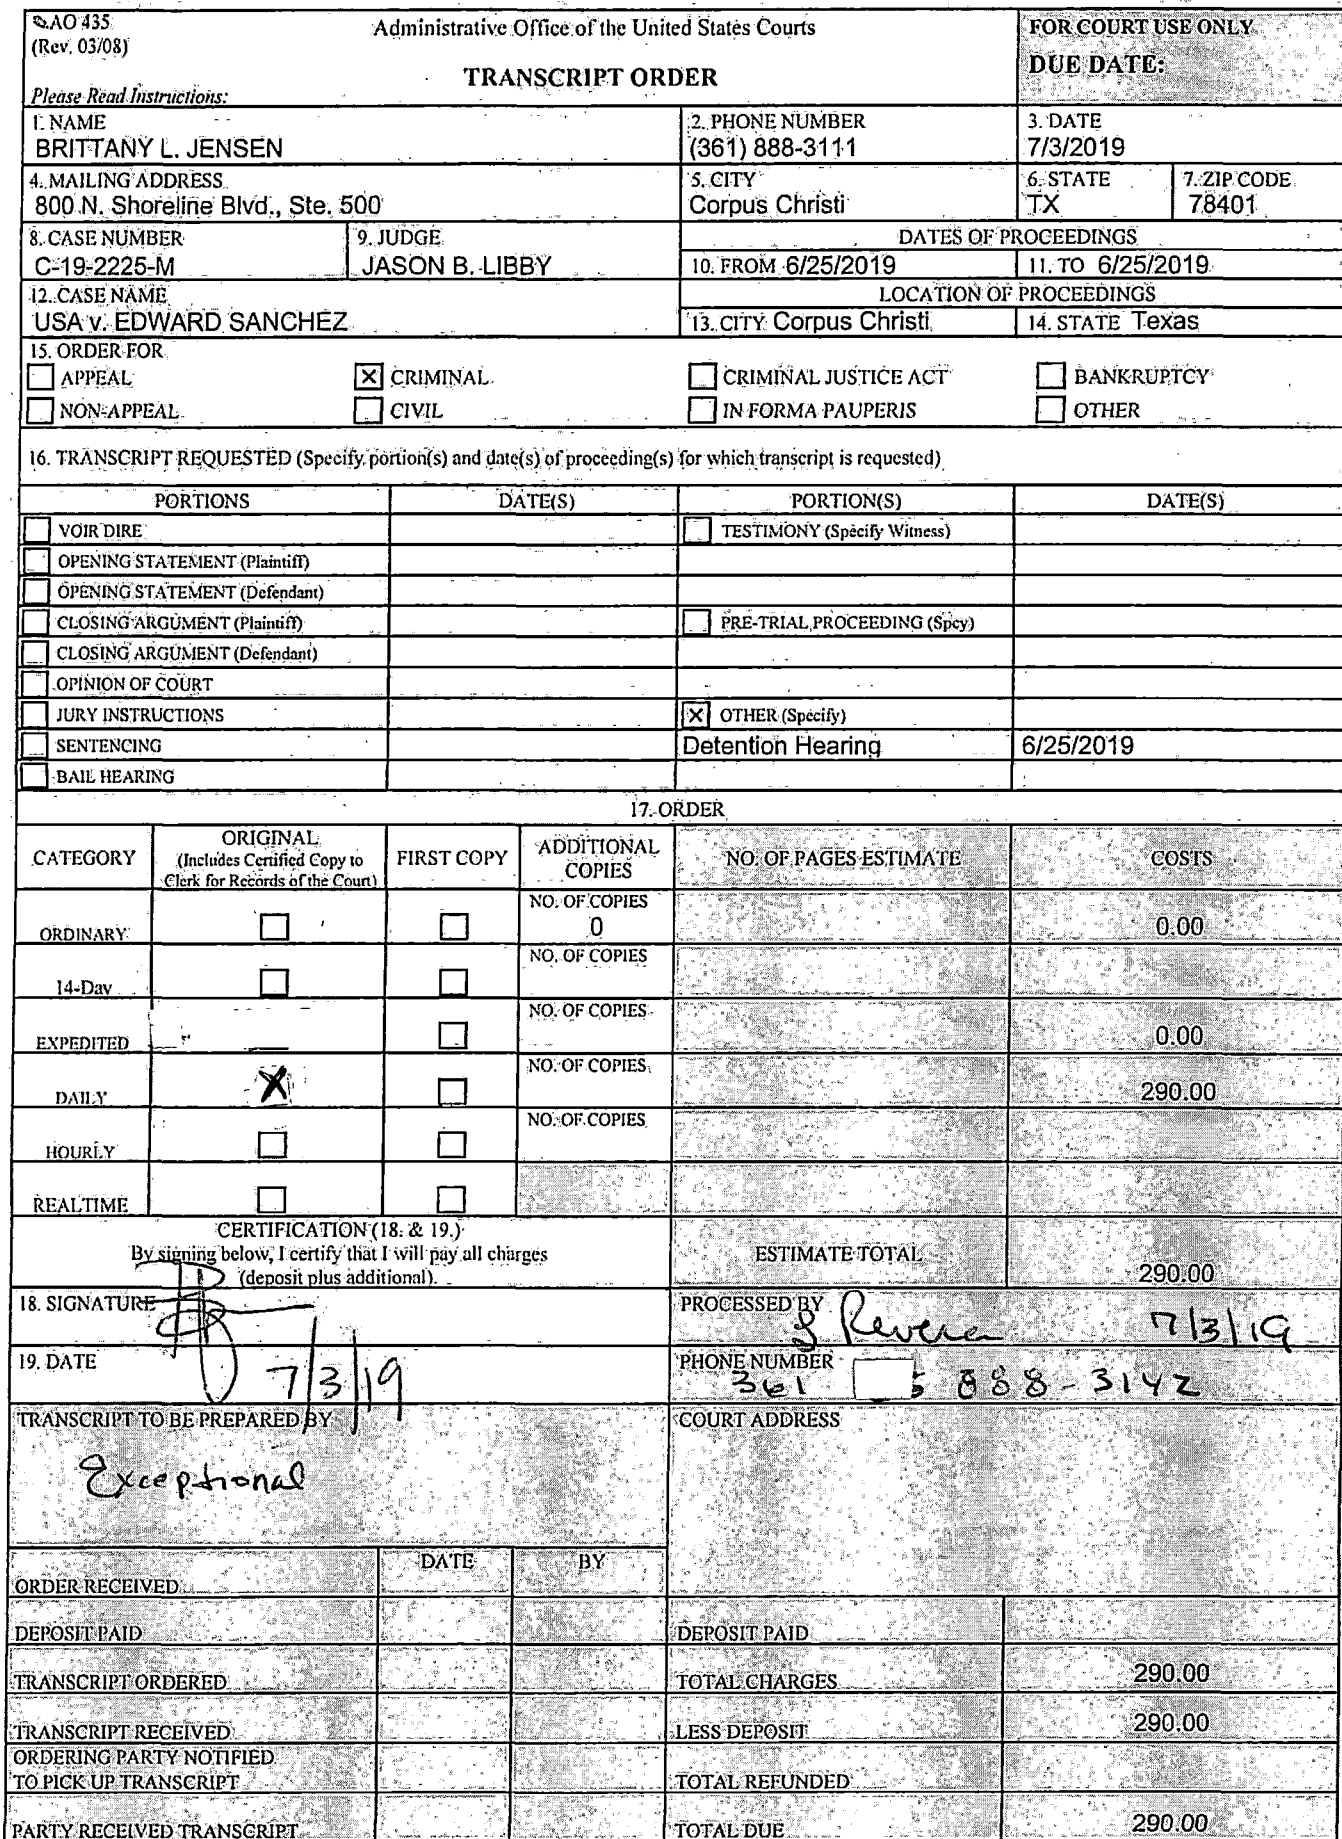 AO 435
(Rev. 03/08)
Administrative Office of the United States Courts
FOR COURT USE ONLY
TRANSCRIPT ORDER
DUE DATE:
Please Read Instructions:
1. NAME
BRITTANY L. JENSEN
2. PHONE NUMBER
(361) 888-3111
3. DATE
7/3/2019
4. MAILING ADDRESS
800 N. Shoreline Blvd., Ste. 500
5. CITY
Corpus Christi
6. STATE
TX
7. ZIP CODE
78401
8. CASE NUMBER
C-19-2225-M
9. JUDGE
JASON B. LIBBY
DATES OF PROCEEDINGS
10. FROM 6/25/2019
11. TO 6/25/2019
12. CASE NAME
USA v. EDWARD SANCHEZ
LOCATION OF PROCEEDINGS
13. CITY Corpus Christi
14. STATE Texas
15. ORDER FOR
APPEAL
X CRIMINAL
CRIMINAL JUSTICE ACT
BANKRUPTCY
NON-APPEAL
CIVIL
IN FORMA PAUPERIS
OTHER
16. TRANSCRIPT REQUESTED (Specify portion(s) and date(s) of proceeding(s) for which transcript is requested)
PORTIONS DATE(S) PORTION(S) DATE(S)
VOIR DIRE
TESTIMONY (Specify Witness)
OPENING STATEMENT (Plaintiff)
OPENING STATEMENT (Defendant)
CLOSING ARGUMENT (Plaintiff)
PRE-TRIAL PROCEEDING (Spcy)
CLOSING ARGUMENT (Defendant)
OPINION OF COURT
JURY INSTRUCTIONS
X OTHER (Specify)
SENTENCING
Detention Hearing 6/25/2019
BAIL HEARING
17. ORDER
CATEGORY
ORIGINAL
(Includes Certified Copy to
Clerk for Records of the Court)
FIRST COPY
ADDITIONAL
COPIES
NO. OF PAGES ESTIMATE
COSTS
ORDINARY
NO. OF COPIES
0
0.00
14-Day
NO. OF COPIES
EXPEDITED
NO. OF COPIES
0.00
DAILY
X
NO. OF COPIES
290.00
HOURLY
NO. OF COPIES
REALTIME
CERTIFICATION (18. & 19.)
By signing below, I certify that I will pay all charges
(deposit plus additional).
ESTIMATE TOTAL
290.00
18. SIGNATURE
PROCESSED BY
7/3/19
19. DATE
7/3/19
PHONE NUMBER
361 888-3142
TRANSCRIPT TO BE PREPARED BY
Exceptional
COURT ADDRESS
DATE BY
ORDER RECEIVED
DEPOSIT PAID
DEPOSIT PAID
TRANSCRIPT ORDERED
TOTAL CHARGES 290.00
TRANSCRIPT RECEIVED
LESS DEPOSIT 290.00
ORDERING PARTY NOTIFIED
TO PICK UP TRANSCRIPT
TOTAL REFUNDED
PARTY RECEIVED TRANSCRIPT
TOTAL DUE 290.00